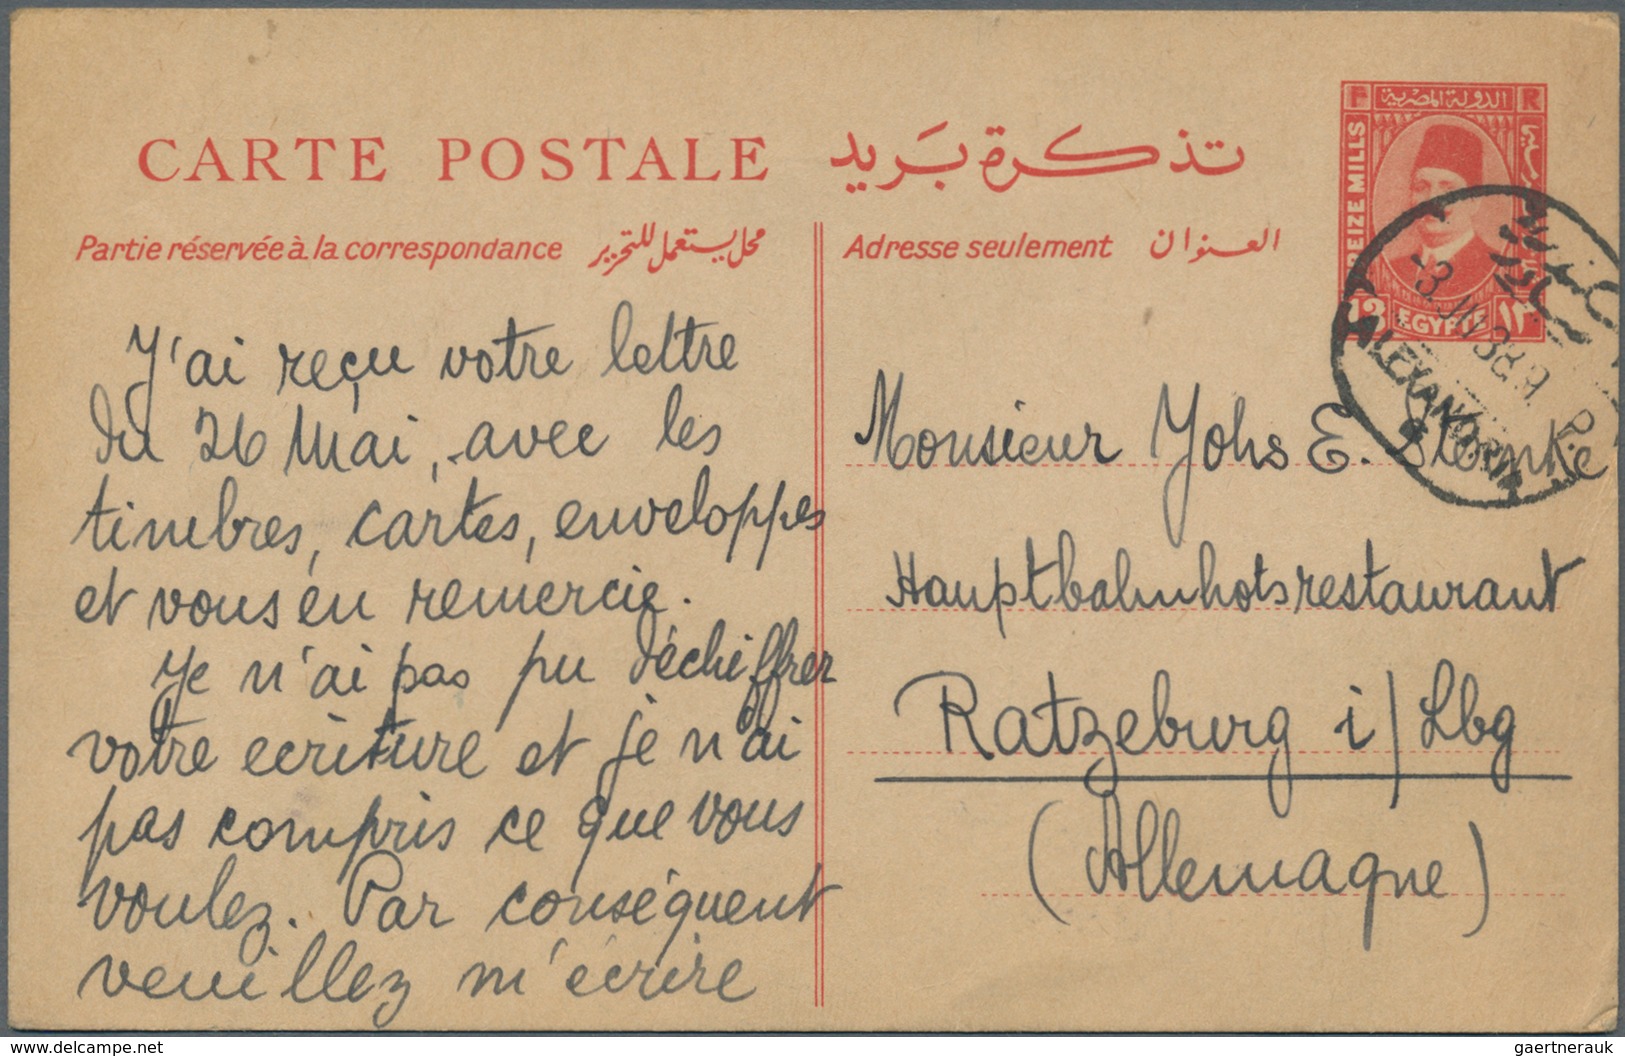 CARTE POSTALE تذكرة بريد
Partie réservée à la correspondance محل يستعمل للتحرير
Adresse seulement العنوان
F الدولة المصرية R
TREIZE MILLS
13 EGYPTE ١٣
ALEXANDRIA
J'ai reçu votre lettre
du 26 Mai, avec les
timbres, cartes, enveloppes
et vous en remercie.
Je n'ai pas pu déchiffrer
votre ecriture et je n'ai
pas compris ce que vous
voulez. Par conséquent
veuillez m'écrire
Monsieur Johs E.
Hauptbahnhofsrestaurant
Ratzeburg i/Lbg
(Allemagne)
www.delcampe.net
gaertnerauk